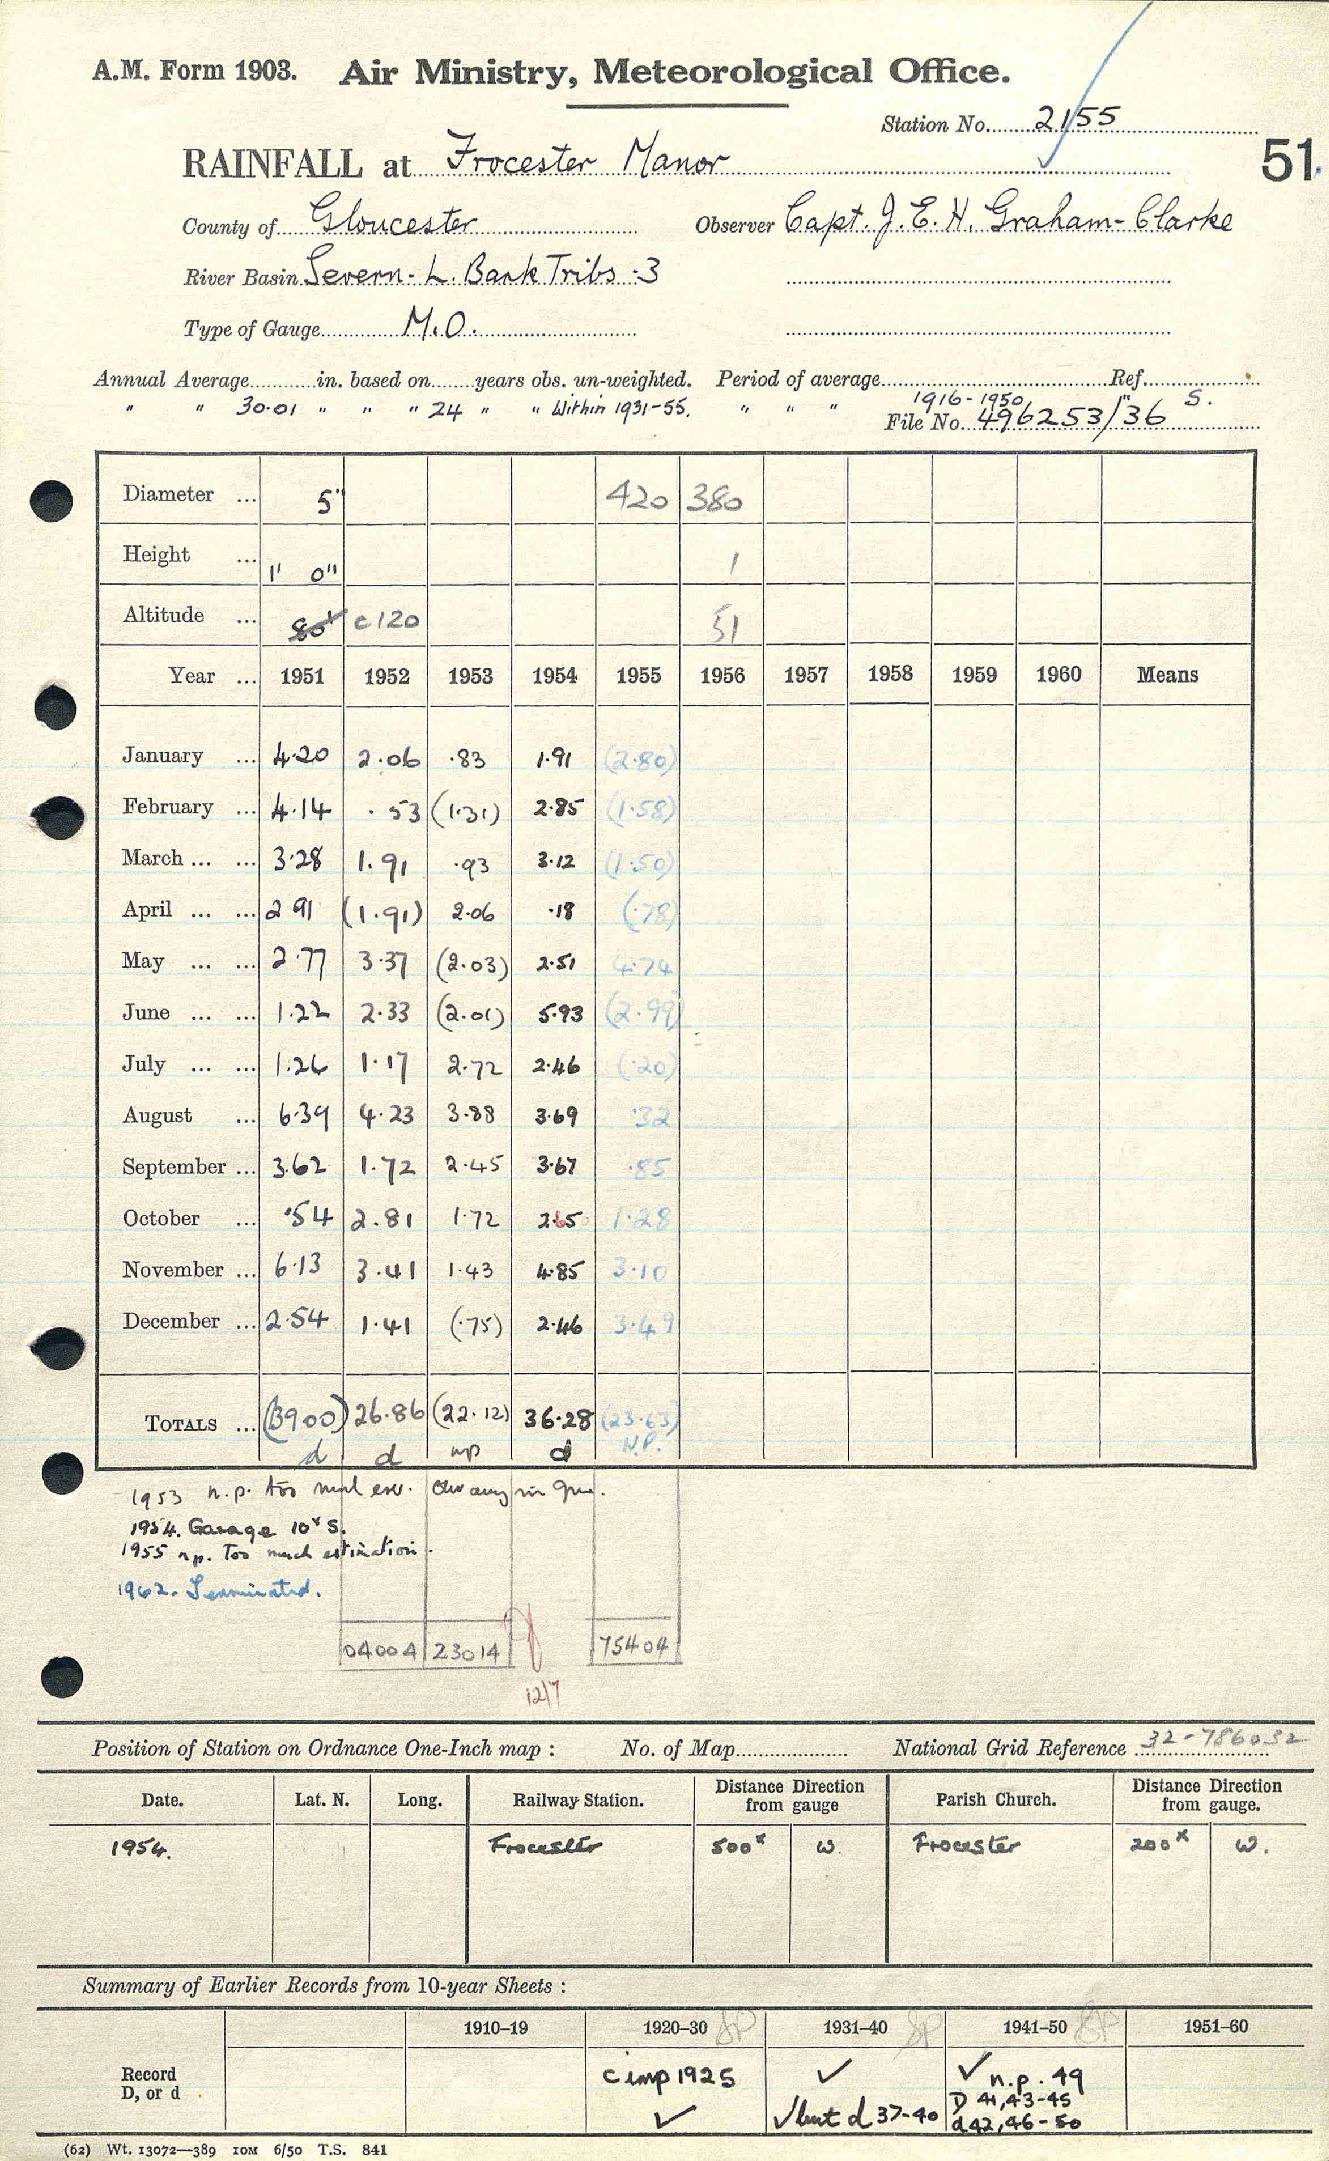 A.M. Form 1903. Air Ministry, Meteorological Office.
Station No. 2155
RAINFALL at Frocester Manor
51.
County of Gloucester Observer Capt. J. E. H. Graham-Clarke
River Basin Severn - L. Bank Tribs :3
Type of Gauge M.O.
Annual Average in. based on years obs. un-weighted. Period of average Ref.
" " 30.01 " " " 24 " " Within 1931-55. " " " 1916-1950 " S.
File No. 496253/36
Diameter ... 5" 420 380
Height ... 1' 0" 1
Altitude ... 80' c120 51
Year ... 1951 1952 1953 1954 1955 1956 1957 1958 1959 1960 Means
January ... 4.20 2.06 .83 1.91 (2.80)
February ... 4.14 .53 (1.31) 2.85 (1.58)
March ... ... 3.28 1.91 .93 3.12 (1.50)
April ... ... 2 91 (1.91) 2.06 .18 (.78)
May ... ... 2.77 3.37 (2.03) 2.51 4.74
June ... ... 1.22 2.33 (2.01) 5.93 (2.99)
July ... ... 1.26 1.17 2.72 2.46 (.20)
August ... 6.39 4.23 3.88 3.69 .32
September ... 3.62 1.72 2.45 3.67 .85
October ... .54 2.81 1.72 2.65 1.28
November ... 6.13 3.41 1.43 4.85 3.10
December ... 2.54 1.41 (.75) 2.46 3.49
TOTALS ... (3900) 26.86 (22.12) 36.28 (23.63)
d d np d N.P.
1953 n.p. too much
1954. Garage 10x S.
1955 n.p. Too much estimation.
1962. Terminated.
04004 23014 75404
12/7
Position of Station on Ordnance One-Inch map : No. of Map National Grid Reference 32-786032
Date. Lat. N. Long. Railway Station. Distance Direction from gauge Parish Church. Distance Direction from gauge.
1954. Frocester 500x W Frocester 200x W.
Summary of Earlier Records from 10-year Sheets :
1910–19 1920–30 SP 1931–40 SP 1941–50 SP 1951–60
Record D, or d
c imp 1925 ✓ ✓ n.p. 49
✓ ✓ but d 37-40 D 41, 43-45
d 42, 46-50
(62) Wt. 13072—389 10M 6/50 T.S. 841